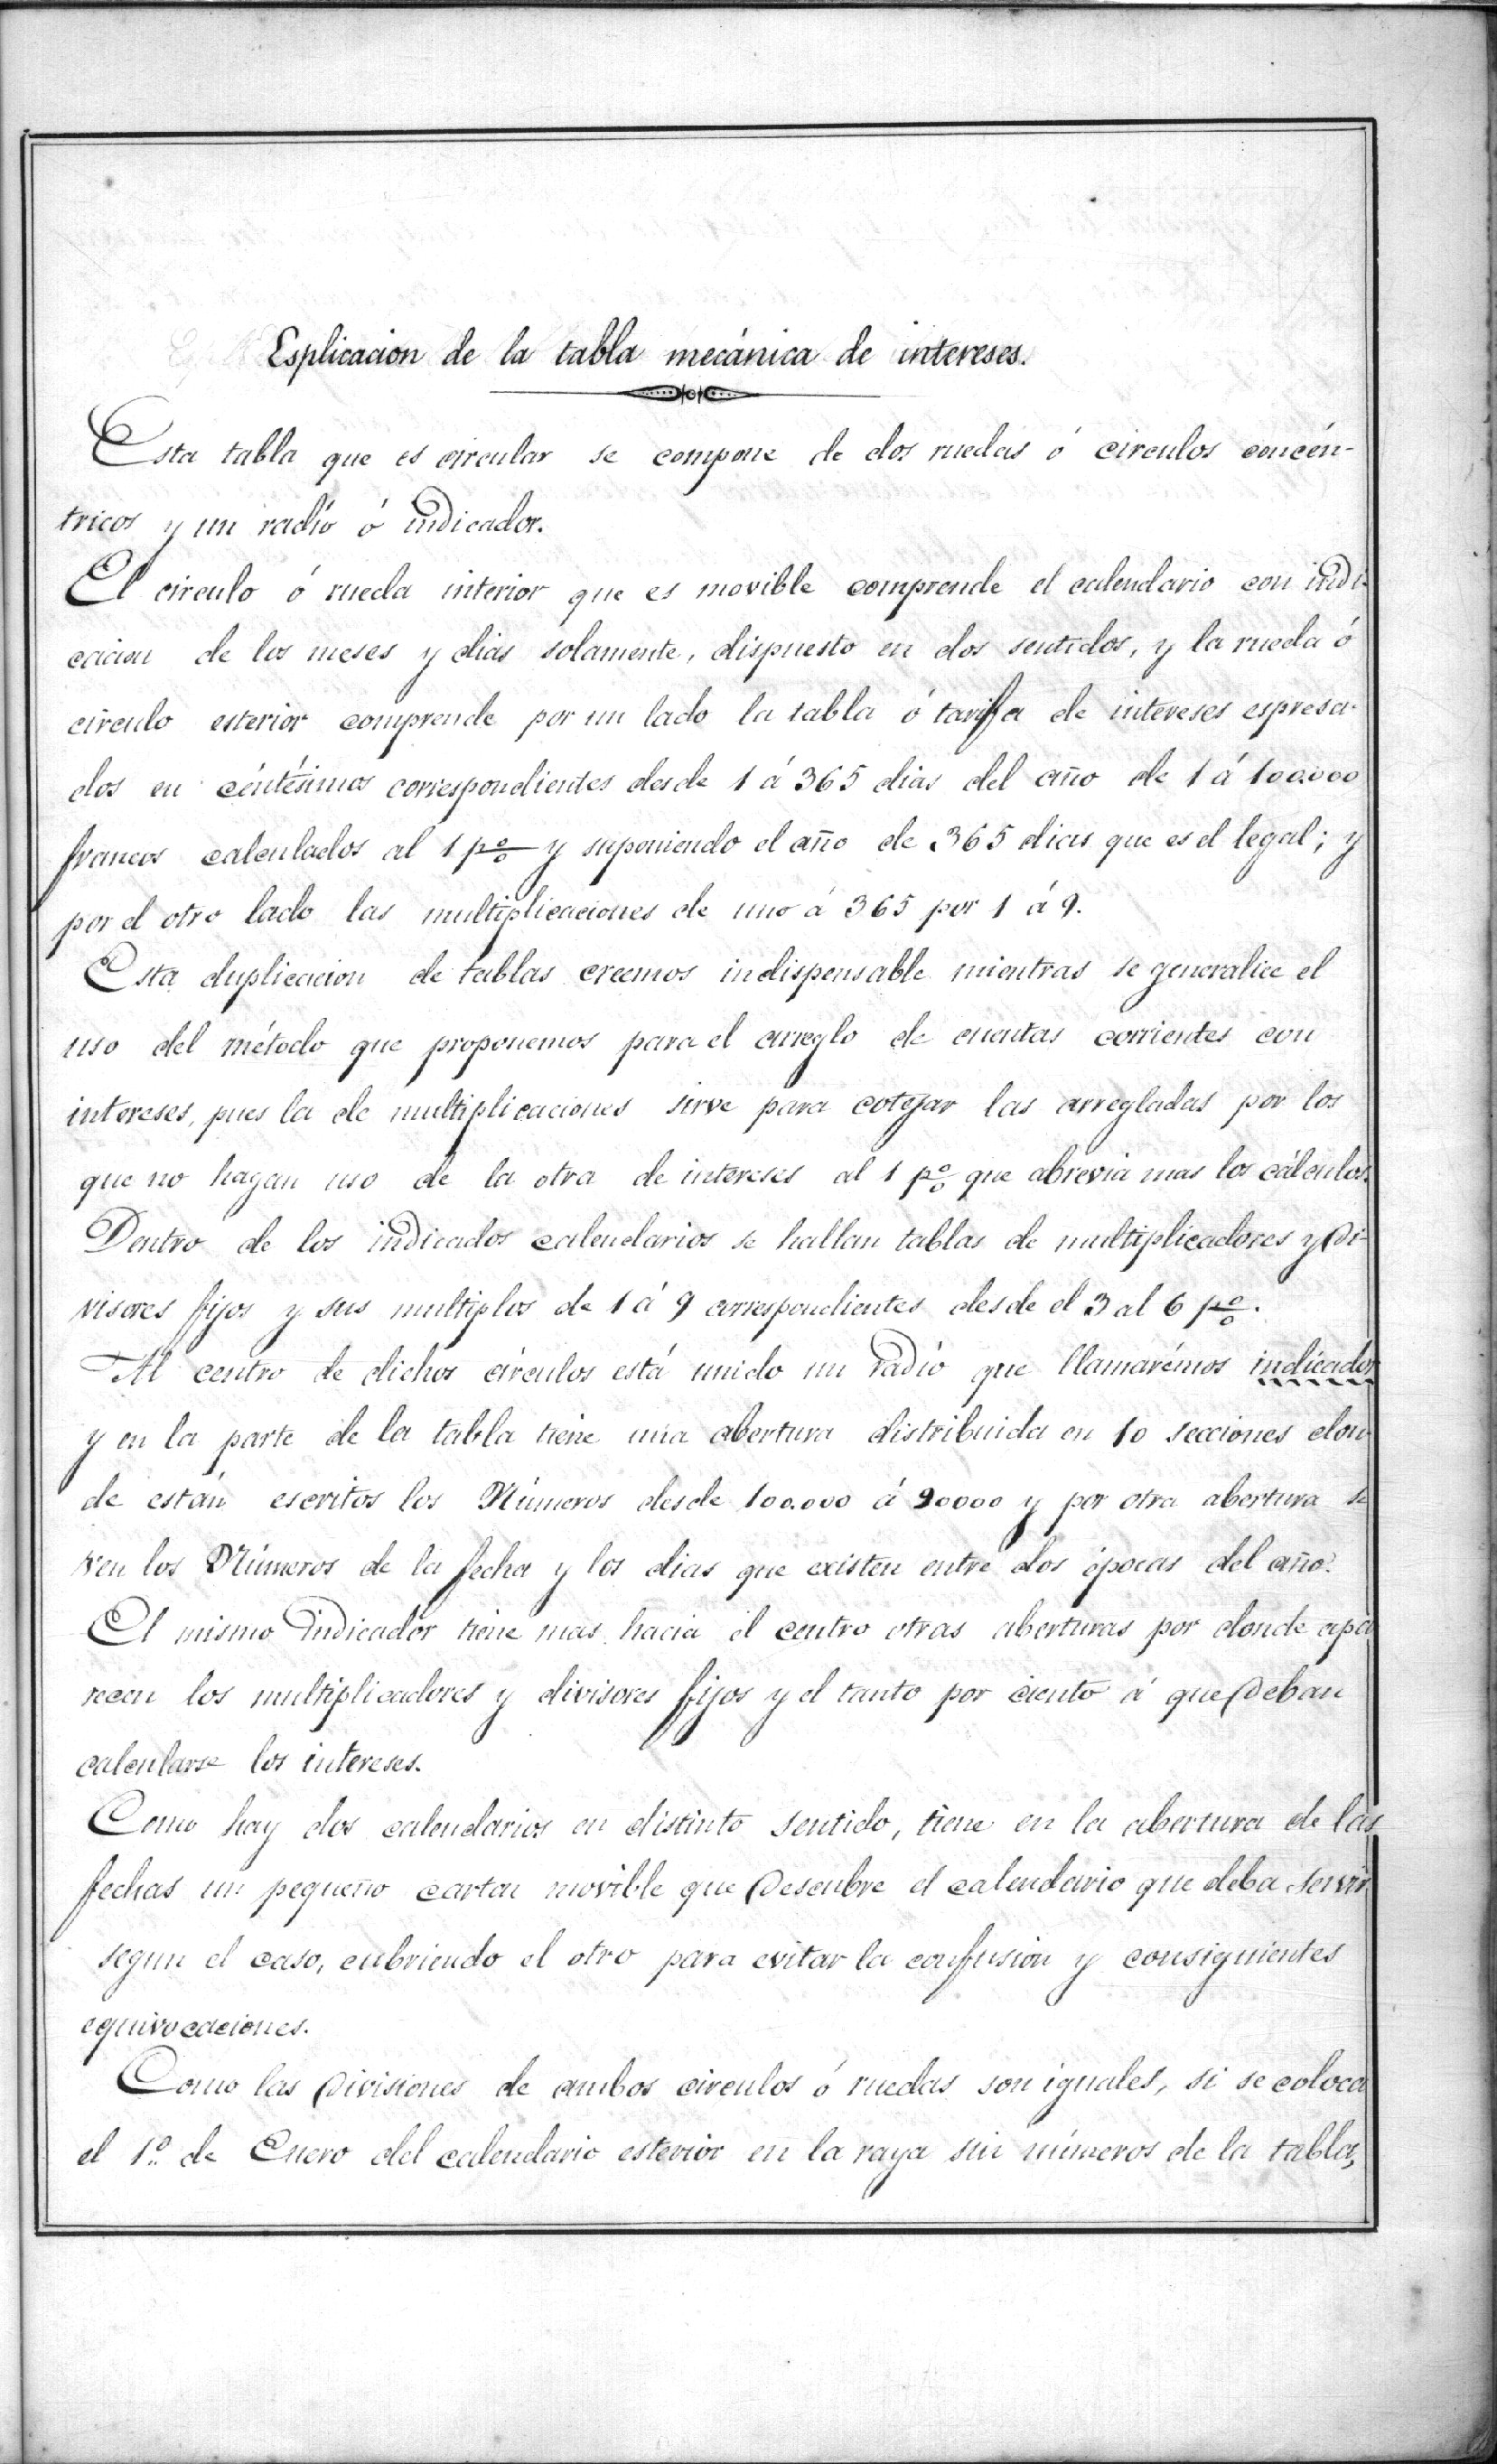 Esplicacion de la tabla mecánica de intereses.
Esta tabla que es circular se compone de dos ruedas ó circulos concén-
tricos y un radio ó indicador.
El circulo ó rueda interior que es movible comprende el calendario con indi-
cacion de los meses y dias solamente, dispuesto en dos sentidos, y la rueda ó
circulo esterior comprende por un lado la tabla ó tarifa de intereses espresa-
dos en céntésimos correspondientes desde 1 á 365 dias del año de 1 á 100.000
francos calculados al 1 p% y suponiendo el año de 365 dias que es el legal; y
por el otro lado las multiplicaciones de uno á 365 por 1 á 9.
Esta duplicacion de tablas creemos indispensable mientras se generalice el
uso del método que proponemos para el arreglo de cuentas corrientes con
intereses, pues la de multiplicaciones sirve para cotejar las arregladas por los
que no hagan uso de la otra de intereses al 1 p% que abrevia mas los cálculos.
Dentro de los indicados calendarios se hallan tablas de multiplicadores y di-
visores fijos y sus multiplos de 1 á 9 correspondientes desde el 3 al 6 p%.
Al centro de dichos círculos está unido un radio que llamarémos indicador
y en la parte de la tabla tiene una abertura distribuida en 10 secciones don-
de están escritos los Números desde 100.000 á 90000 y por otra abertura se
ven los Números de la fecha y los dias que existen entre dos épocas del año.
El mismo indicador tiene mas hacia el centro otras aberturas por donde apa
recen los multiplicadores y divisores fijos y el tanto por ciento á que deban
calcularse los intereses.
Como hay dos calendarios en distinto sentido, tiene en la abertura de las
fechas un pequeño carton movible que descubre el calendario que deba servir
segun el caso, cubriendo el otro para evitar la confusion y consiguientes
equivocaciones.
Como las divisiones de ambos circulos ó ruedas son iguales, si se coloca
el 1º de Enero del calendario esterior en la raya sin números de la tabla,